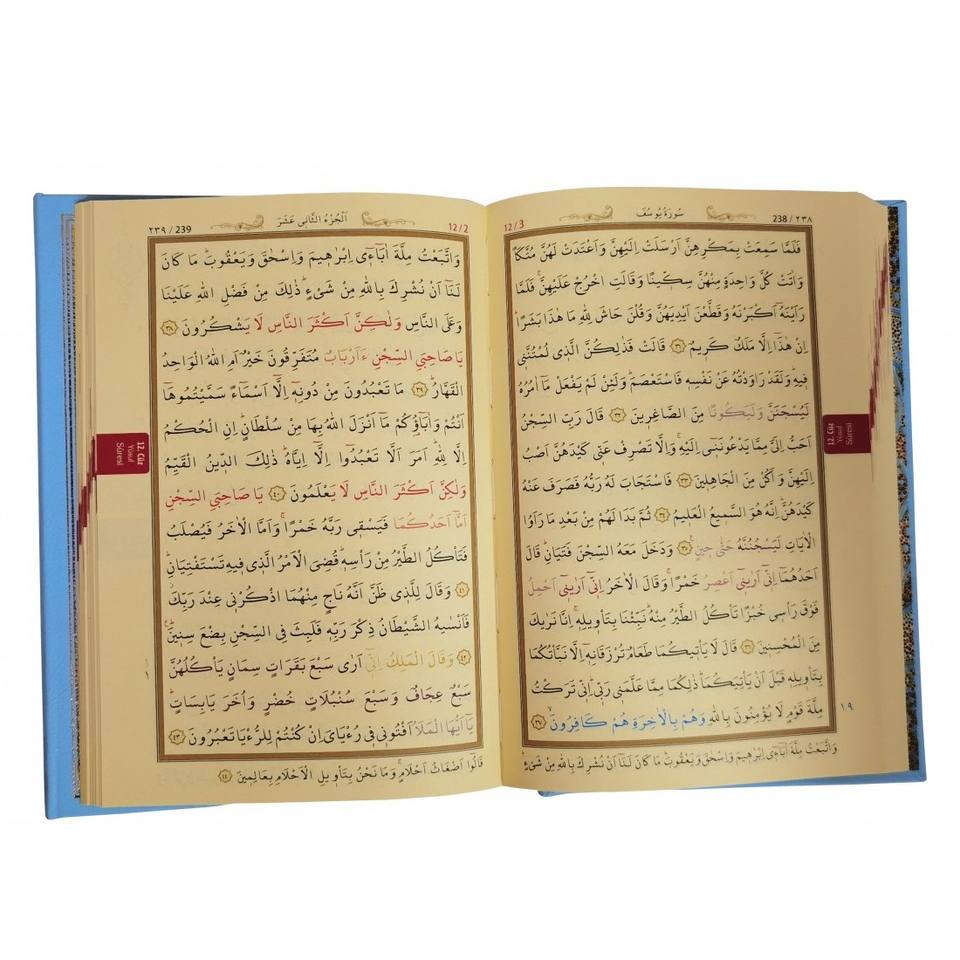 ٢٣٨ / 238
سُورَةُ يُوسُفَ
12/3
فَلَمَّا سَمِعَتْ بِمَكْرِهِنَّ اَرْسَلَتْ اِلَيْهِنَّ وَاَعْتَدَتْ لَهُنَّ مُتَّكَـًٔا
وَاٰتَتْ كُلَّ وَاحِدَةٍ مِنْهُنَّ سِكّ۪ينًا وَقَالَتِ اخْرُجْ عَلَيْهِنَّۚ فَلَمَّا
رَاَيْنَهُٓ اَكْبَرْنَهُ وَقَطَّعْنَ اَيْدِيَهُنَّ وَقُلْنَ حَاشَ لِلّٰهِ مَا هٰذَا بَشَرًاۜ
اِنْ هٰذَٓا اِلَّا مَلَكٌ كَر۪يمٌ ﴿٣١﴾ قَالَتْ فَذٰلِكُنَّ الَّذ۪ي لُمْتُنَّن۪ي
ف۪يهِۜ وَلَقَدْ رَاوَدْتُهُ عَنْ نَفْسِه۪ فَاسْتَعْصَمَۜ وَلَئِنْ لَمْ يَفْعَلْ مَٓا اٰمُرُهُ
لَيُسْجَنَنَّ وَلَيَكُونًا مِنَ الصَّاغِر۪ينَ ﴿٣٢﴾ قَالَ رَبِّ السِّجْنُ
اَحَبُّ اِلَيَّ مِمَّا يَدْعُونَن۪ٓي اِلَيْهِۚ وَاِلَّا تَصْرِفْ عَنّ۪ي كَيْدَهُنَّ اَصْبُ
اِلَيْهِنَّ وَاَكُنْ مِنَ الْجَاهِل۪ينَ ﴿٣٣﴾ فَاسْتَجَابَ لَهُ رَبُّهُ فَصَرَفَ عَنْهُ
كَيْدَهُنَّۜ اِنَّهُ هُوَ السَّم۪يعُ الْعَل۪يمُ ﴿٣٤﴾ ثُمَّ بَدَا لَهُمْ مِنْ بَعْدِ مَا رَاَوُا
الْاٰيَاتِ لَيَسْجُنُنَّهُ حَتّٰى ح۪ينٍ ﴿٣٥﴾ وَدَخَلَ مَعَهُ السِّجْنَ فَتَيَانِۜ قَالَ
اَحَدُهُمَٓا اِنّ۪ٓي اَرٰين۪ٓي اَعْصِرُ خَمْرًاۚ وَقَالَ الْاٰخَرُ اِنّ۪ٓي اَرٰين۪ٓي اَحْمِلُ
فَوْقَ رَأْس۪ي خُبْزًا تَأْكُلُ الطَّيْرُ مِنْهُۜ نَبِّئْنَا بِتَأْو۪يلِه۪ۚ اِنَّا نَرٰيكَ
مِنَ الْمُحْسِن۪ينَ ﴿٣٦﴾ قَالَ لَا يَأْت۪يكُمَا طَعَامٌ تُرْزَقَانِه۪ٓ اِلَّا نَبَّأْتُكُمَا
بِتَأْو۪يلِه۪ قَبْلَ اَنْ يَأْتِيَكُمَاۜ ذٰلِكُمَا مِمَّا عَلَّمَن۪ي رَبّ۪يۜ اِنّ۪ي تَرَكْتُ
مِلَّةَ قَوْمٍ لَا يُؤْمِنُونَ بِاللّٰهِ وَهُمْ بِالْاٰخِرَةِ هُمْ كَافِرُونَ ﴿٣٧﴾
١٩
وَاتَّبَعْتُ مِلَّةَ اٰبَٓاء۪ٓي اِبْرٰه۪يمَ وَاِسْحٰقَ وَيَعْقُوبَۜ مَا كَانَ لَنَٓا اَنْ نُشْرِكَ بِاللّٰهِ مِنْ شَيْءٍۜ
12. Cüz
Yûsuf
Sûresi
12/2
اَلْجُزْءُ الثَّان۪ي عَشَرَ
٢٣٩ / 239
وَاتَّبَعْتُ مِلَّةَ اٰبَٓاء۪ٓي اِبْرٰه۪يمَ وَاِسْحٰقَ وَيَعْقُوبَۜ مَا كَانَ
لَنَٓا اَنْ نُشْرِكَ بِاللّٰهِ مِنْ شَيْءٍۜ ذٰلِكَ مِنْ فَضْلِ اللّٰهِ عَلَيْنَا
وَعَلَى النَّاسِ وَلٰكِنَّ اَكْثَرَ النَّاسِ لَا يَشْكُرُونَ ﴿٣٨﴾
يَا صَاحِبَيِ السِّجْنِ ءَاَرْبَابٌ مُتَفَرِّقُونَ خَيْرٌ اَمِ اللّٰهُ الْوَاحِدُ
الْقَهَّارُۜ ﴿٣٩﴾ مَا تَعْبُدُونَ مِنْ دُونِه۪ٓ اِلَّٓا اَسْمَٓاءً سَمَّيْتُمُوهَٓا
اَنْتُمْ وَاٰبَٓاؤُ۬كُمْ مَٓا اَنْزَلَ اللّٰهُ بِهَا مِنْ سُلْطَانٍۜ اِنِ الْحُكْمُ
اِلَّا لِلّٰهِۜ اَمَرَ اَلَّا تَعْبُدُٓوا اِلَّٓا اِيَّاهُۜ ذٰلِكَ الدّ۪ينُ الْقَيِّمُ
وَلٰكِنَّ اَكْثَرَ النَّاسِ لَا يَعْلَمُونَ ﴿٤٠﴾ يَا صَاحِبَيِ السِّجْنِ
اَمَّٓا اَحَدُكُمَا فَيَسْق۪ي رَبَّهُ خَمْرًاۚ وَاَمَّا الْاٰخَرُ فَيُصْلَبُ
فَتَأْكُلُ الطَّيْرُ مِنْ رَأْسِه۪ۜ قُضِيَ الْاَمْرُ الَّذ۪ي ف۪يهِ تَسْتَفْتِيَانِۜ
﴿٤١﴾ وَقَالَ لِلَّذ۪ي ظَنَّ اَنَّهُ نَاجٍ مِنْهُمَا اذْكُرْن۪ي عِنْدَ رَبِّكَۘ
فَاَنْسٰيهُ الشَّيْطَانُ ذِكْرَ رَبِّه۪ فَلَبِثَ فِي السِّجْنِ بِضْعَ سِن۪ينَۜ
﴿٤٢﴾ وَقَالَ الْمَلِكُ اِنّ۪ٓي اَرٰى سَبْعَ بَقَرَاتٍ سِمَانٍ يَأْكُلُهُنَّ
سَبْعٌ عِجَافٌ وَسَبْعَ سُنْبُلَاتٍ خُضْرٍ وَاُخَرَ يَابِسَاتٍۜ
يَٓا اَيُّهَا الْمَلَأُ اَفْتُون۪ي ف۪ي رُءْيَايَ اِنْ كُنْتُمْ لِلرُّءْيَا تَعْبُرُونَ ﴿٤٣﴾
قَالُٓوا اَضْغَاثُ اَحْلَامٍۚ وَمَا نَحْنُ بِتَأْو۪يلِ الْاَحْلَامِ بِعَالِم۪ينَ ﴿٤٤﴾
12. Cüz
Yûsuf
Sûresi